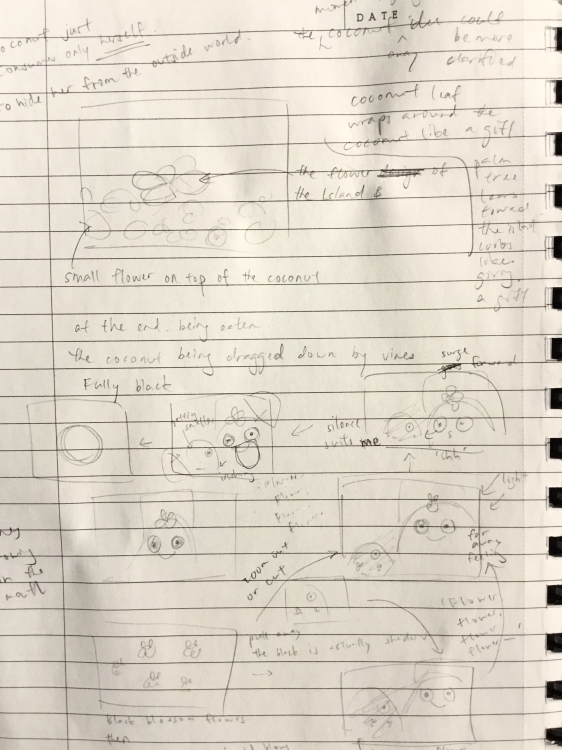 DATE
oconut just
consumes only herself.
to hide her from the outside world.
the coconut idea could
be more
clarified
coconut leaf
wraps around the
coconut like a gift
the flower of
the Island &
palm
tree
leans
toward
the
like
giving
a gift
small flower on top of the coconut
at the end. being eaten
the coconut being dragged down by vines
surge
forward
Fully black
silence
suits me
light
far
away
feeling
zoom out
or cut
mouth
the
flower,
flower,
flower
flower
pull away
the black is actually shadow
black blossom flowers
then